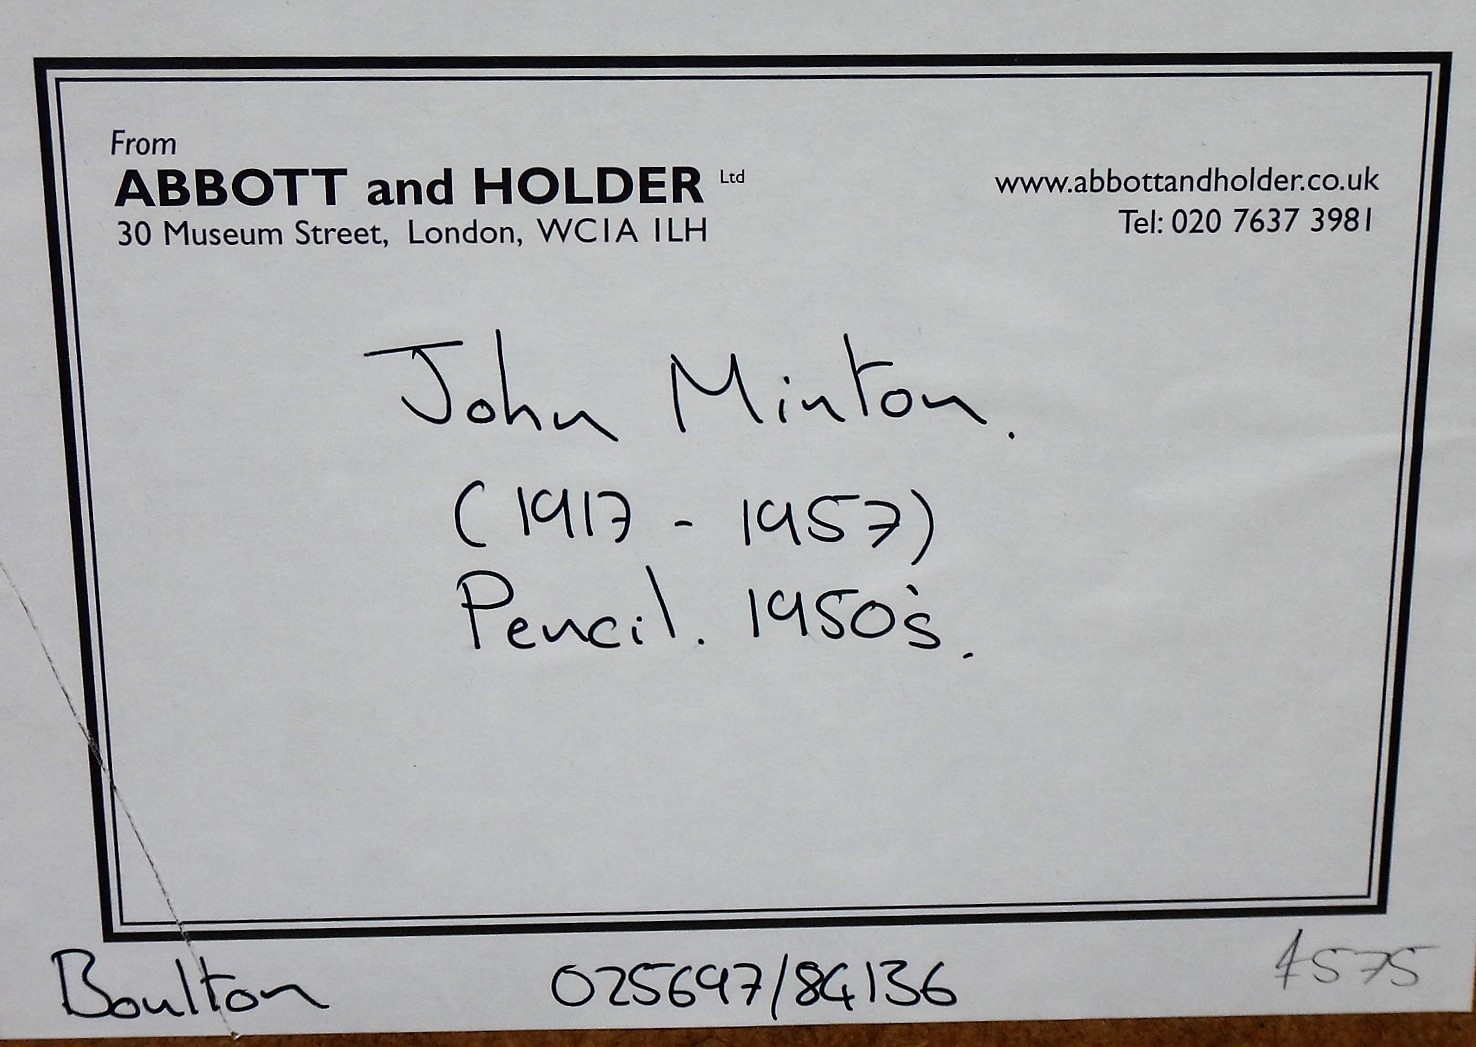 From
ABBOTT and HOLDER Ltd
30 Museum Street, London, WC1A 1LH
www.abbottandholder.co.uk
Tel: 020 7637 3981
John Minton.
(1917 - 1957)
Pencil. 1950's.
Boulton 025697/84136 £575